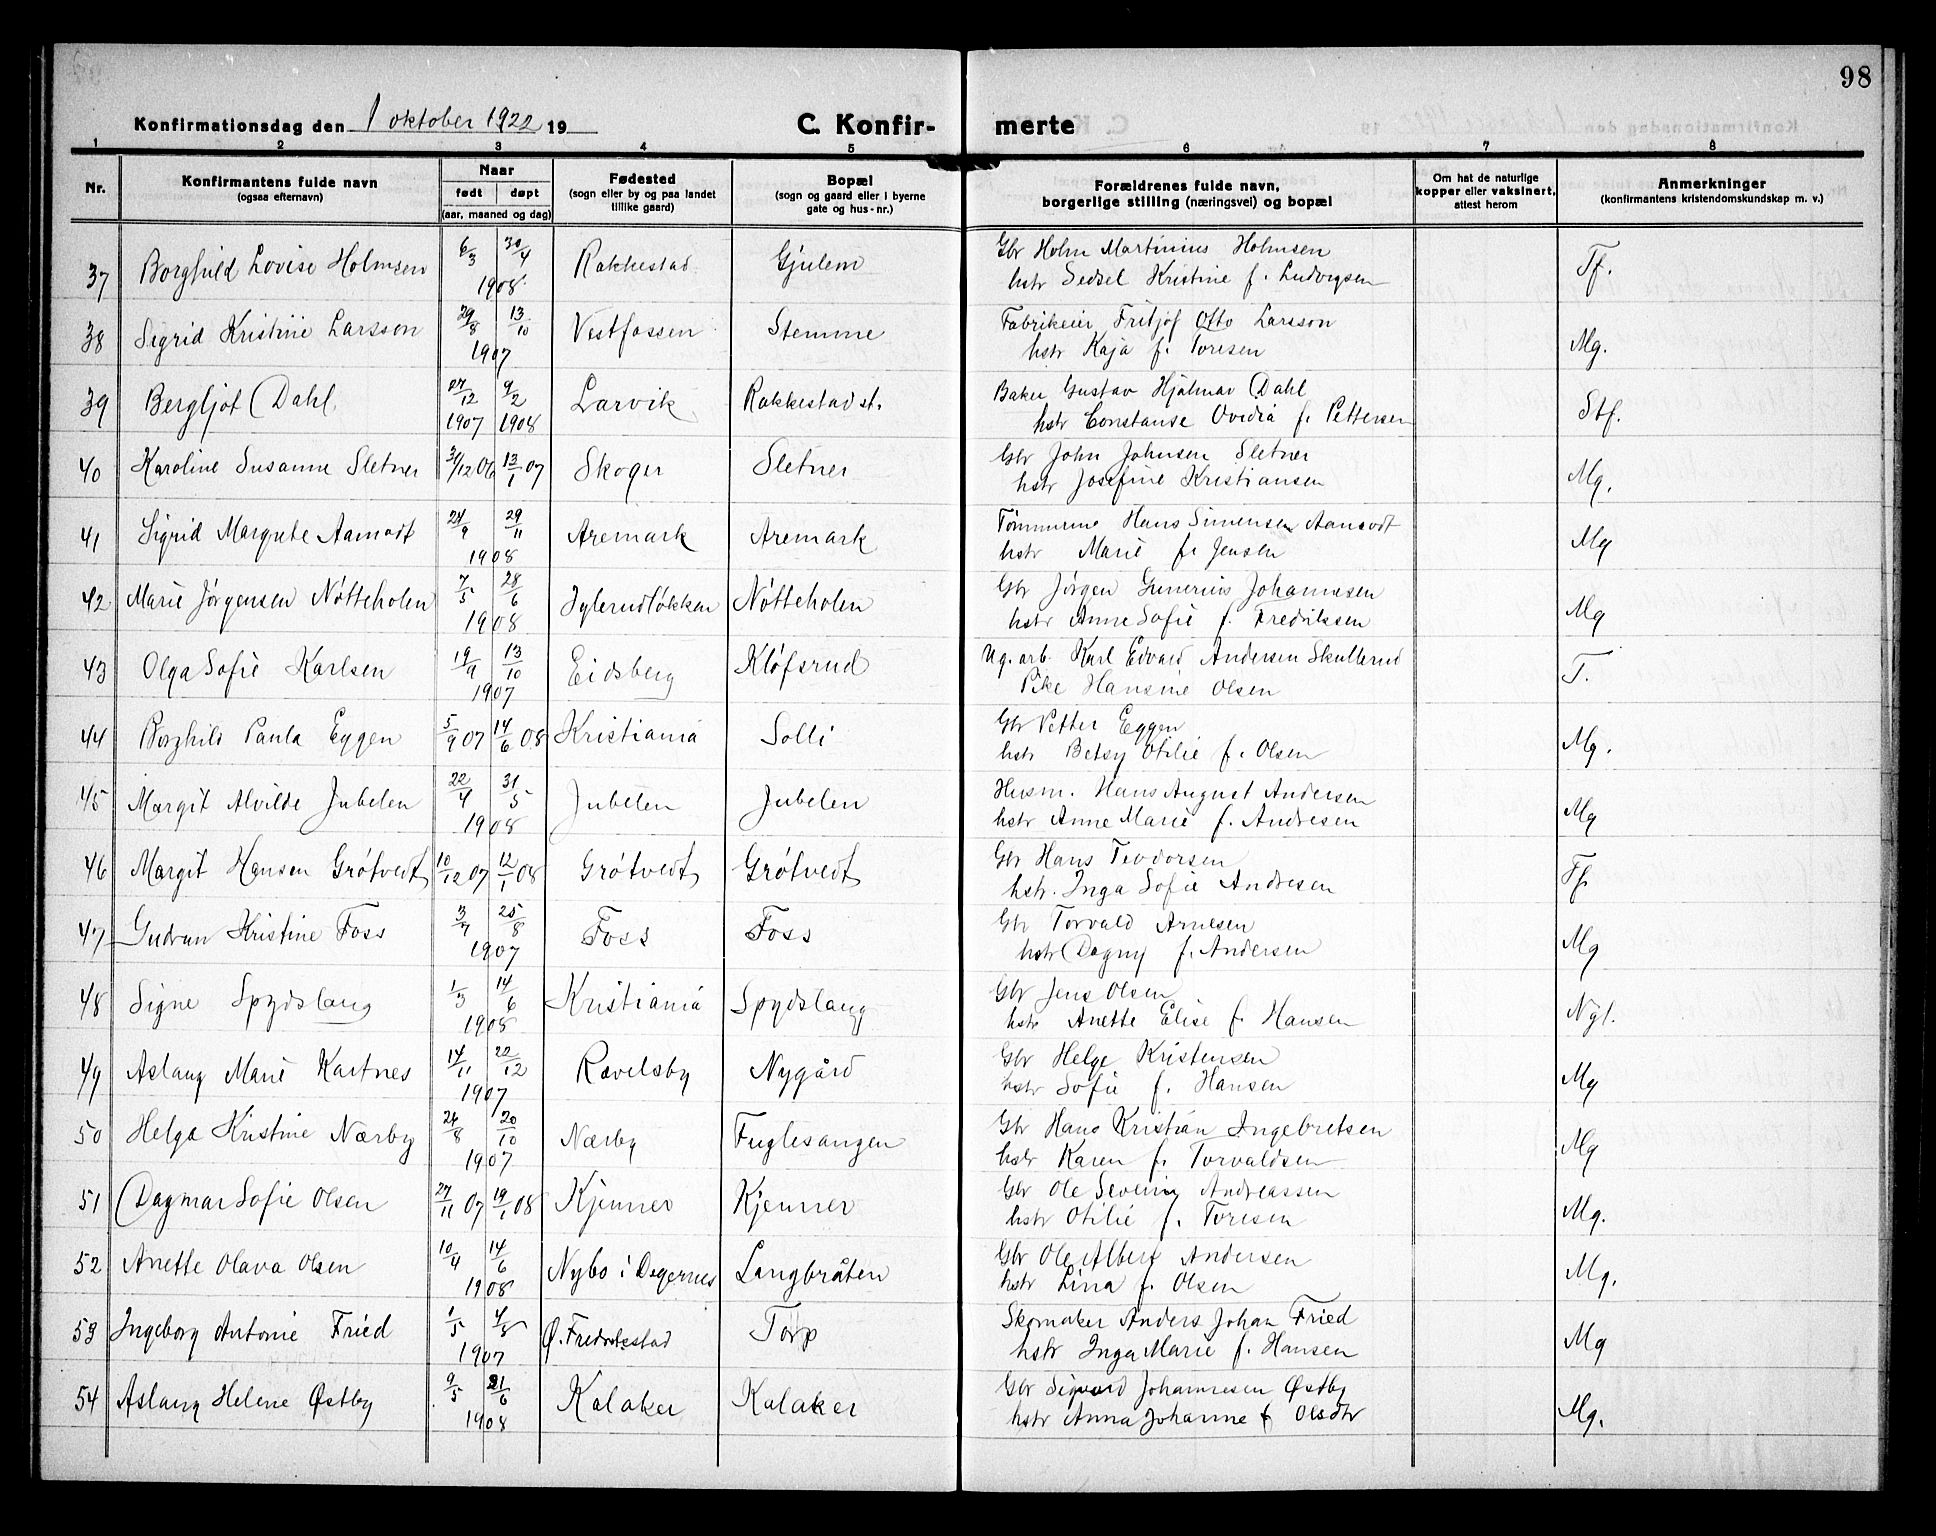 98
Konfirmationsdag den 1 oktober 1922 19
C. Konfir- merte
1 2 3 4 5 6 7 8
Nr.
Konfirmantens fulde navn
(ogsaa efternavn)
Naar
født døpt
(aar, maaned og dag)
Fødested
(sogn eller by og paa landet
tillike gaard)
Bopæl
(sogn og gaard eller i byerne
gate og hus-nr.)
Forældrenes fulde navn,
borgerlige stilling (næringsvei) og bopæl
Om hat de naturlige
kopper eller vaksinert,
attest herom
Anmerkninger
(konfirmantens kristendomskundskap m. v.)
37 Borghild Lovise Holmsen 6/3 30/4 1908 Rakkestad Gjulem Gbr Holm Martinius Holmsen
hstr Sedsel Kristine f. Ludvigsen Tf.
38 Sigrid Kristine Larsson 29/8 13/10 1907 Vestfossen Stemme Fabrikeier Fritjof Otto Larsson
hstr Kaja f. Toresen Mg.
39 Bergljot Dahl 27/12 1907 9/2 1908 Larvik Rakkestad st. Baker Gustav Hjalmar Dahl
hstr Constanse Ovidia f. Pettersen Stf.
40 Karoline Susanne Sletner 3/12 06 13/1 07 Skoger Sletner Gbr John Johnsen Sletner
hstr Josefine Kristiansen Mg.
41 Sigrid Margrete Aamodt 24/9 29/11 1908 Aremark Aremark Hans Simensen Aamodt
hstr Marie f. Jensen Mg
42 Marie Jørgensen Nøtteholen 7/5 28/6 1908 Nøtteholen Gbr Jørgen Gunerius Johannesen
hstr Anne Sofie f. Fredriksen Mg
43 Olga Sofie Karlsen 19/9 13/10 1907 Eidsberg Kløfsrud Ug. arb. Karl Edvard Andersen Skullerud
Pike Hansine Olsen T.
44 Borghild Paula Eggen 5/9 07 14/6 08 Kristiania Solli Gbr Petter Eggen
hstr Betsy Otilie f. Olsen Mg.
45 Margit Alvilde Jubelen 22/4 31/5 1908 Jubelen Jubelen Husm. Hans August Andersen
hstr Anne Marie f. Andresen Mg
46 Margit Hansen Grøtvedt 10/12 07 12/1 08 Grøtvedt Grøtvedt Gbr Hans Teodorsen
hstr. Inga Sofie Andresen Tf.
47 Gudrun Kristine Foss 3/7 25/8 1907 Foss Foss Gbr Torvald Arnesen
hstr Dagny f. Andersen Mg
48 Signe Spydslaug 1/3 14/6 1908 Kristiania Spydslaug Gbr Jens Olsen
hstr Anette Elise f. Hansen Ngl.
49 Aslaug Marie Kartnes 14/11 22/12 1907 Rævelsby Nygård Gbr Helge Kristensen
hstr Sofie f. Hansen Mg
50 Helga Kristine Nærby 24/8 20/10 1907 Nærby Fuglesangen Gbr Hans Kristian Ingebretsen
hstr Karen f. Torvaldsen Mg
51 Dagmar Sofie Olsen 27/11 07 19/1 08 Kjenner Kjenner Gbr Ole Severin Andreassen
hstr Otilie f. Toresen Mg.
52 Anette Olava Olsen 10/4 14/6 1908 Nybo i Degernes Langbråten Gbr Ole Albert Andersen
hstr Lina f. Olsen Mg.
53 Ingeborg Antonie Fried 1/5 4/8 1907 Ø. Fredrikstad Torp Skomaker Anders Johan Fried
hstr Inga Marie f. Hansen Mg
54 Aslaug Helene Østby 9/5 21/6 1908 Kalaker Kalaker Gbr Sigvard Johannesen Østby
hstr Anna Johanne f Olsdtr Mg.